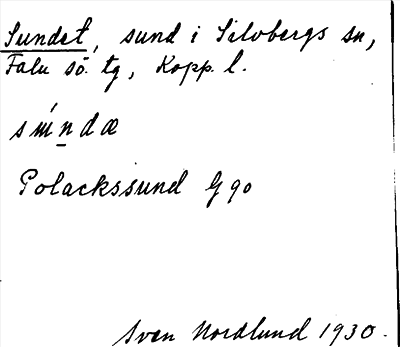 Sundet, sund i Silvbergs sn,
Falu sö. tg, Kopp. l.
súndæ
Polackssund G 90
Sven Nordlund 1930.